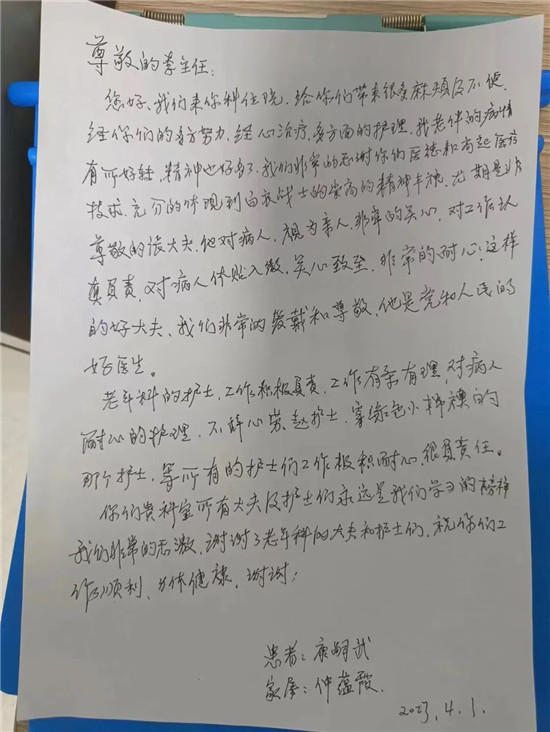 尊敬的李主任:
您好、我们来你科住院.给你们带来很多麻烦及不便.
经你们的多方努力.经心治疗.多方面的护理.我老伴的病情
有所好转.精神也好多了.我们非常的感谢你们医德和高超医疗
技术.充分的体现到白衣战士的崇高的精神丰穗.尤期是
尊敬的 大夫.他对病人.视为亲人.非常的关心.对工作认
真负责.对病人体贴入微.关心致至.非常的耐心:这样
的好大夫.我们非常的爱戴和尊敬.他是党和人民的
好医生。
老年科的护士.工作积极负责.工作有条有理.对病人
耐心的护理.不辞心劳.赵护士.穿绿色小 的
那个护士.等所有的护士们工作极积耐心.很负责任。
你们贵科室所有大夫及护士们永远是我们学习的榜样
我们非常的感激.谢谢了老年科的大夫和护士们.祝你们工
作顺利、身体健康.谢谢!
患者:康嗣武
家属:仲蕴霞.
2023.4.1.